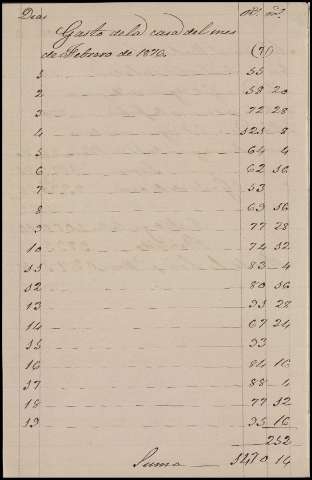 Dias
Gasto de la casa del mes
de Febrero de 1870. (7)
1 55
2 58 20
3 72 28
4 125 8
5 64 4
6 62 16
7 53
8 69 16
9 77 28
10 74 12
11 83 4
12 80 16
13 95 28
14 67 24
15 93
16 84 16
17 88 4
18 77 12
19 95 16
252
Suma 1470 14